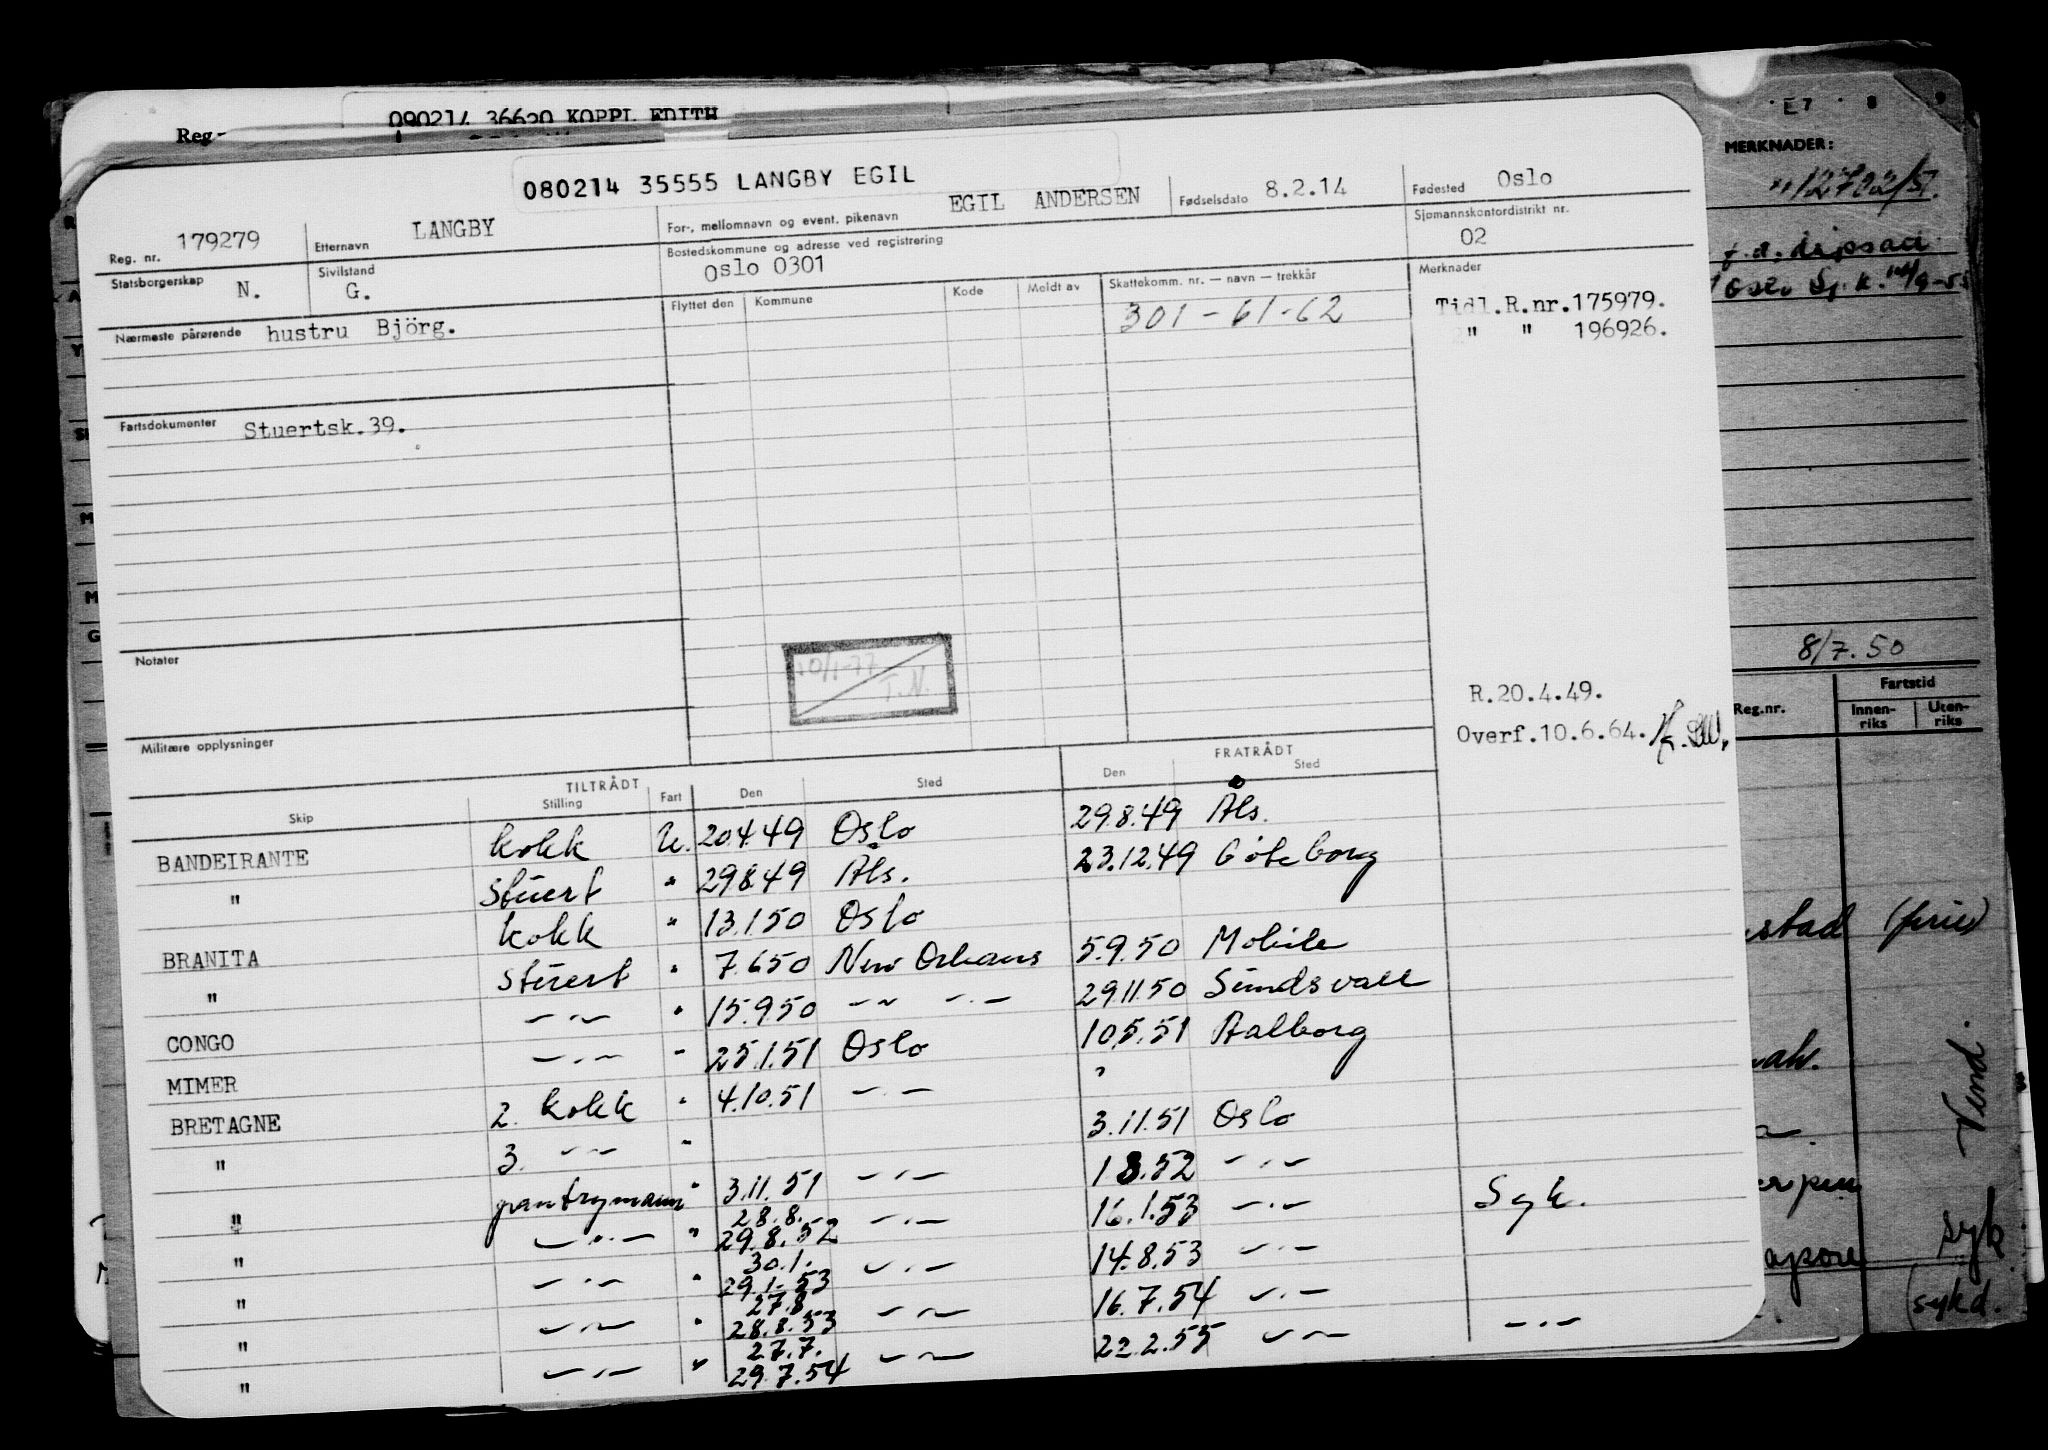 090214 36620 KOPPL EDITH
Reg
E7 8 9
MERKNADER:
080214 35555 LANGBY EGIL
Reg. nr. 179279 Etternavn LANGBY For-, mellomnavn og event. pikenavn EGIL ANDERSEN Fødselsdato 8.2.14 Fødested Oslo
Statsborgerskap N. Sivilstand G. Bostedskommune og adresse ved registrering Oslo 0301 Sjømannskontordistrikt nr. 02
Nærmeste pårørende hustru Björg. Flyttet den Kommune Kode Meldt av Skattekomm. nr. — navn — trekkår Merknader
301-61-62 Tidl.R.nr.175979.
" " 196926.
Fartsdokumenter Stuertsk.39.
Notater
10/1-77
T.N.
8/7.50
R.20.4.49.
Militære opplysninger
Overf.10.6.64.
Reg.nr. Fartstid
Innen-riks Uten-riks
TILTRÅDT FRATRÅDT
Skip Stilling Fart Den Sted Den Sted
BANDEIRANTE kokk U. 20.4.49 Oslo 29.8.49 Åls.
" Stuert " 29.8.49 Åls. 23.12.49 Göteborg
BRANITA kokk " 13.1.50 Oslo
" Stuert " 7.6.50 New Orleans 5.9.50 Mobile
CONGO —"— " 15.9.50 —"— —"— 29.11.50 Sundsvall
MIMER —"— " 25.1.51 Oslo 10.5.51 Aalborg
BRETAGNE 2. kokk " 4.10.51 —"— "
" 3. —"— " 3.11.51 Oslo
" pantrymann " 3.11.51 —"— 1.8.52 —"—
28.8.
" —"— " 29.8.52 —"— 16.1.53 —"— Syk.
30.1.
" —"— " 29.1.53 —"— 14.8.53 —"—
27.8.
" —"— " 28.8.53 —"— 16.7.54 —"—
27.7.
" —"— " 29.7.54 —"— 22.2.55 —"— —"—
syk
(sykd.